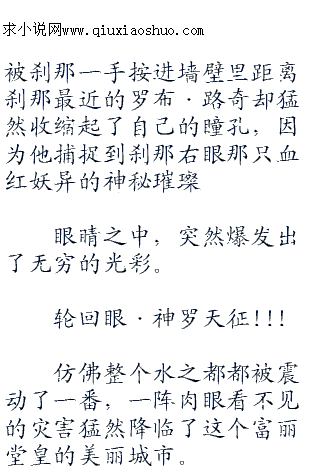 求小说网www.qiuxiaoshuo.com
被刹那一手按进墙壁里距离
刹那最近的罗布·路奇却猛
然收缩起了自己的瞳孔，因
为他捕捉到刹那右眼那只血
红妖异的神秘璀璨
眼睛之中，突然爆发出
了无穷的光彩。
轮回眼·神罗天征!!!
仿佛整个水之都都被震
动了一番，一阵肉眼看不见
的灾害猛然降临了这个富丽
堂皇的美丽城市。